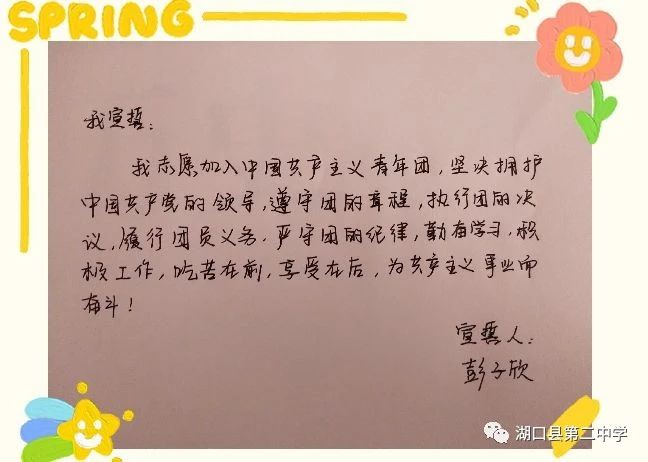 SPRING
我宣誓：
我志愿加入中国共产主义青年团，坚决拥护
中国共产党的领导，遵守团的章程，执行团的决
议，履行团员义务，严守团的纪律，勤奋学习，积
极工作，吃苦在前，享受在后，为共产主义事业而
奋斗！
宣誓人：
彭子欣
湖口县第二中学